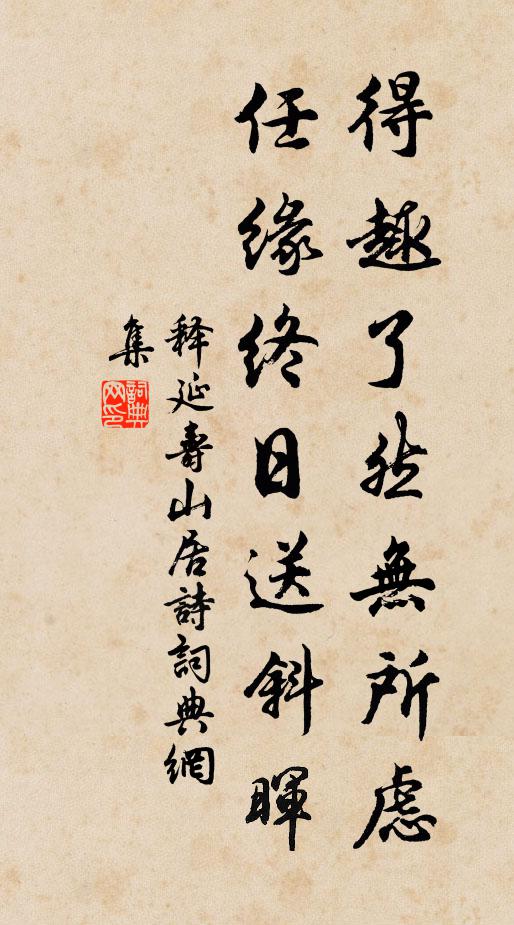 得趣了然無所慮
任緣終日送斜暉
释延壽山居詩詞典網
集
詞典
网印